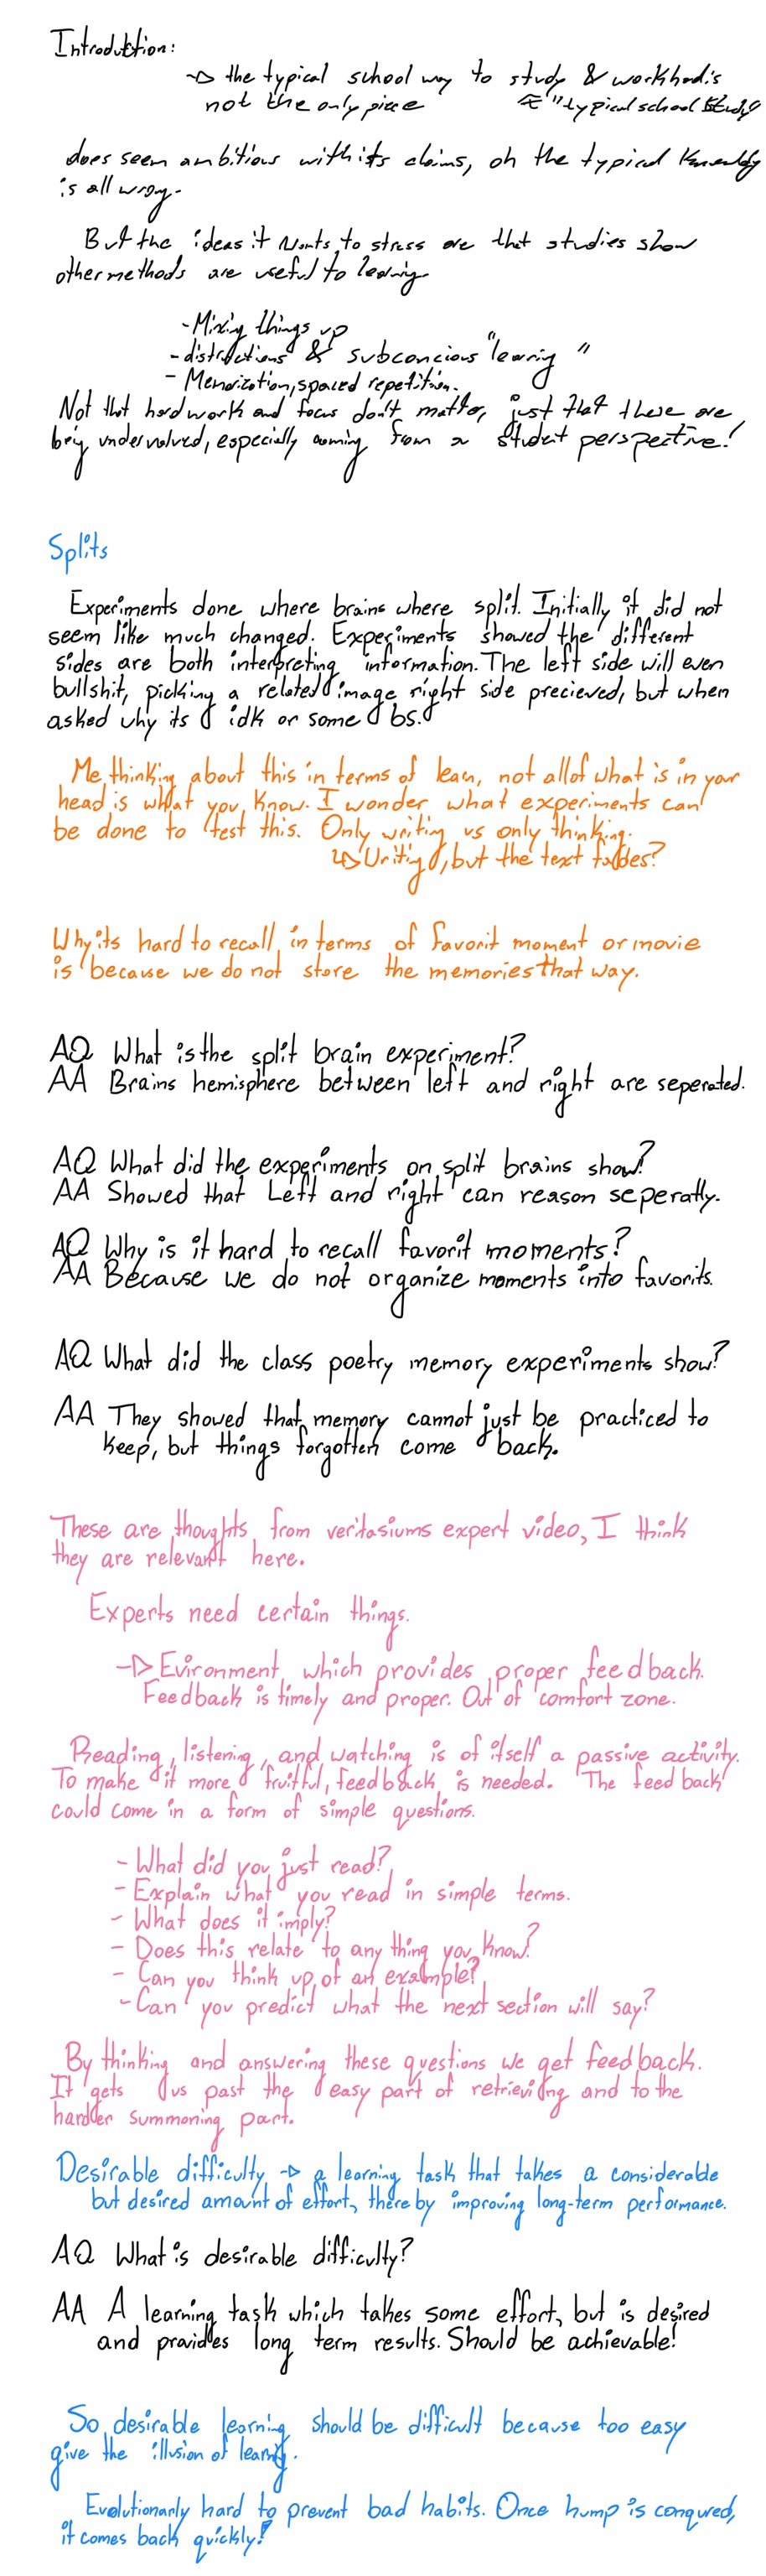 Introduction:
→ the typical school way to study & work hard is
not the only piece ← "typical school study"
does seem ambitious with its claims, oh the typical
is all wrong.
But the ideas it wants to stress are that studies show
other methods are useful to learning
- Mixing things up
- distractions & subconcious "learning"
- Memorization, spaced repetition.
Not that hard work and focus don't matter, just that these are
being undervalued, especially coming from a student perspective!
Splits
Experiments done where brains where split. Initially it did not
seem like much changed. Experiments showed the different
sides are both interpreting information. The left side will even
bullshit, picking a related image right side precieved, but when
asked why its idk or some bs.
Me thinking about this in terms of learn, not all of what is in your
head is what you know. I wonder what experiments can
be done to test this. Only writing vs only thinking.
↳ Writing, but the text fades?
Why its hard to recall in terms of favorit moment or movie
is because we do not store the memories that way.
AQ What is the split brain experiment?
AA Brains hemisphere between left and right are seperated.
AQ What did the experiments on split brains show?
AA Showed that Left and right can reason seperatly.
AQ Why is it hard to recall favorit moments?
AA Because we do not organize moments into favorits.
AQ What did the class poetry memory experiments show?
AA They showed that memory cannot just be practiced to
keep, but things forgotten come back.
These are thoughts from veritasiums expert video, I think
they are relevant here.
Experts need certain things.
→ Evironment which provides proper feedback.
Feedback is timely and proper. Out of comfort zone.
Reading, listening, and watching is of itself a passive activity.
To make it more fruitful, feedback is needed. The feedback
could come in a form of simple questions.
- What did you just read?
- Explain what you read in simple terms.
- What does it imply?
- Does this relate to any thing you know?
- Can you think up of an example?
- Can you predict what the next section will say?
By thinking and answering these questions we get feedback.
It gets us past the easy part of retrieving and to the
harder summoning part.
Desirable difficulty → a learning task that takes a considerable
but desired amount of effort, there by improving long-term performance.
AQ What is desirable difficulty?
AA A learning task which takes some effort, but is desired
and provides long term results. Should be achievable!
So desirable learning should be difficult because too easy
give the illusion of learning.
Evolutionarly hard to prevent bad habits. Once hump is conqured,
it comes back quickly!